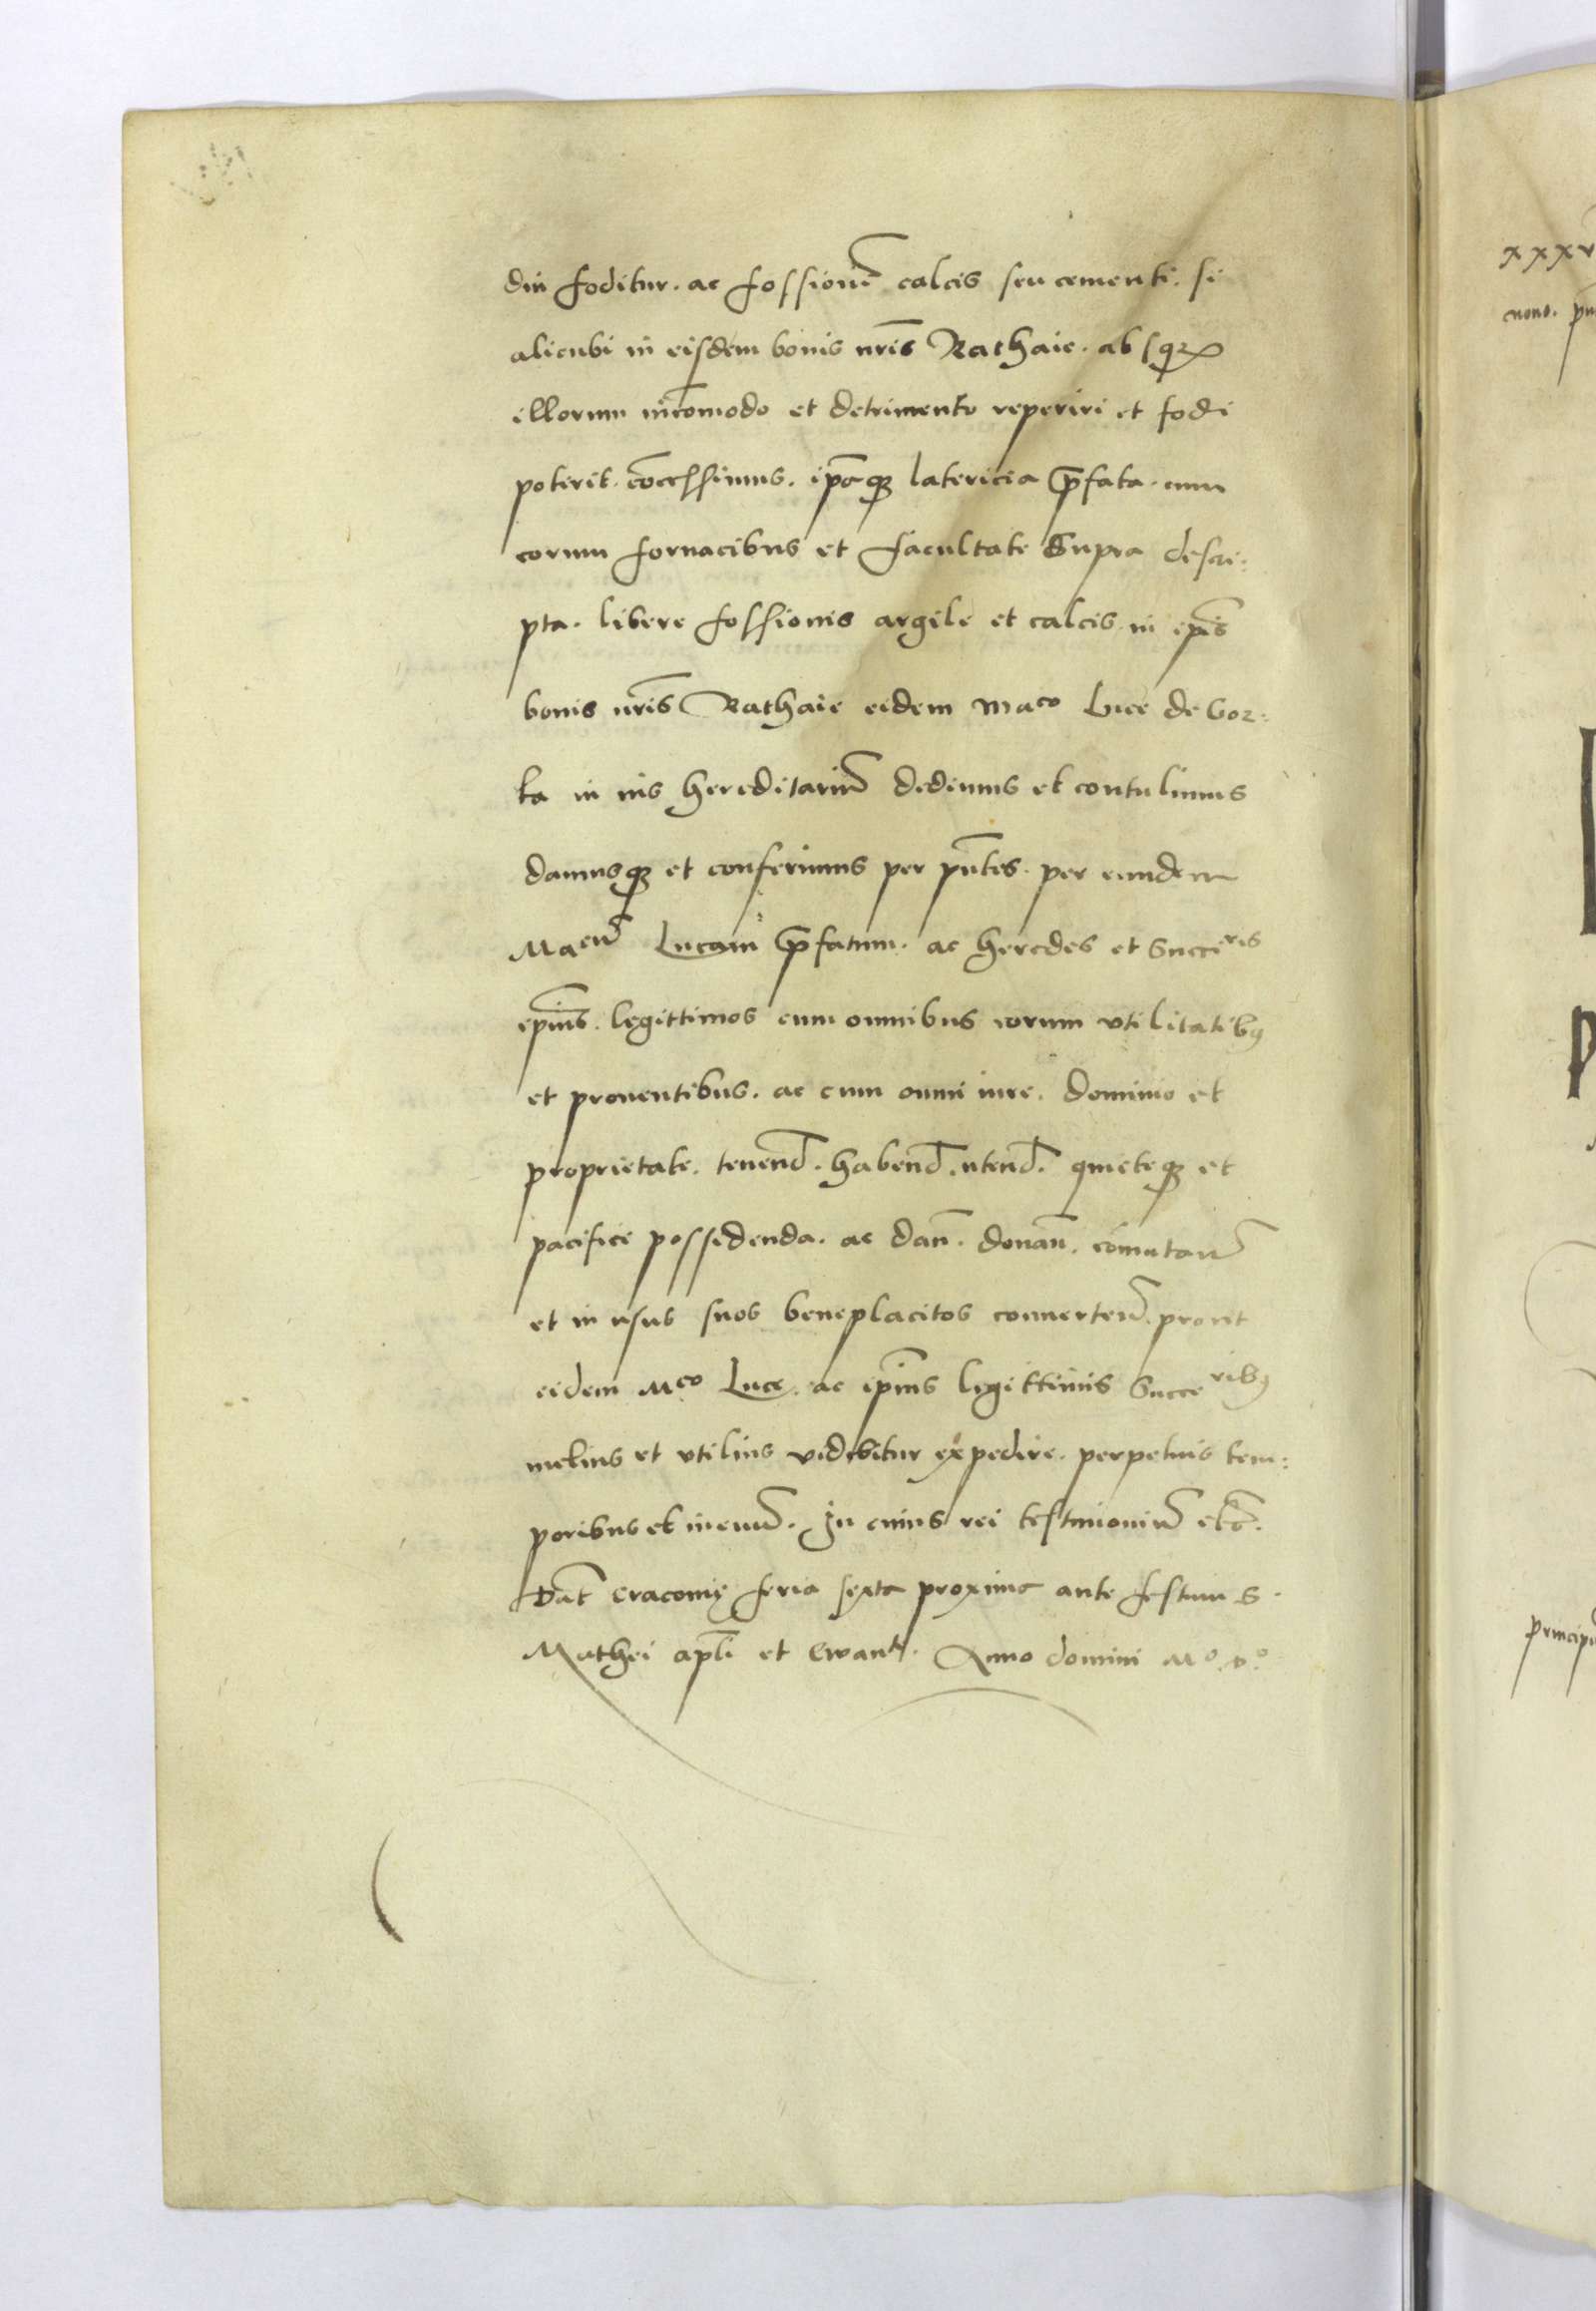 diu foditur. ac fossionē calcis seu cementi. si
alicubi in eisdem bonis nr̄is Rathaie. absqȝ
illorum incōmodo et detrimento reperiri et fodi
poterit. cōcessimus. ip̄aqȝ latericia p̄fata. cum
eorum fornacibus et facultate Supra descri:
pta. libere fossionis argile et calcis in ip̄is
bonis nr̄is Rathaie eidem Maco Luce de Gor:
ka in ius hereditariū dedimus et contulimus
damusqȝ et conferimus per pn̄tes. per eundem
Macū Lucam p̄fatum. ac heredes et Succeres
ip̄ius. legittimos cum omnibus eorum vtilitatibꝫ
et prouentibus. ac cum omni iure. dominio et
proprietate. tenend̄. habend̄. utend̄. quieteqȝ et
pacifice possidenda. ac dan̄. donan̄. cōmutan̄
et in usus suos beneplacitos conuerten̄. prout
eidem Mco Luce. ac ip̄ius legittimis Succeribꝫ
melius et vtilius videbitur expedire. perpetuis tem:
poribus et in euū. In cuius rei testimoniū etc̄.
Dat̄ Cracouię feria sexta proxima ante festum S.
Mathei apl̄i et Ewantē. Anno domini Mo. vo.
xxxv
nono.
principi